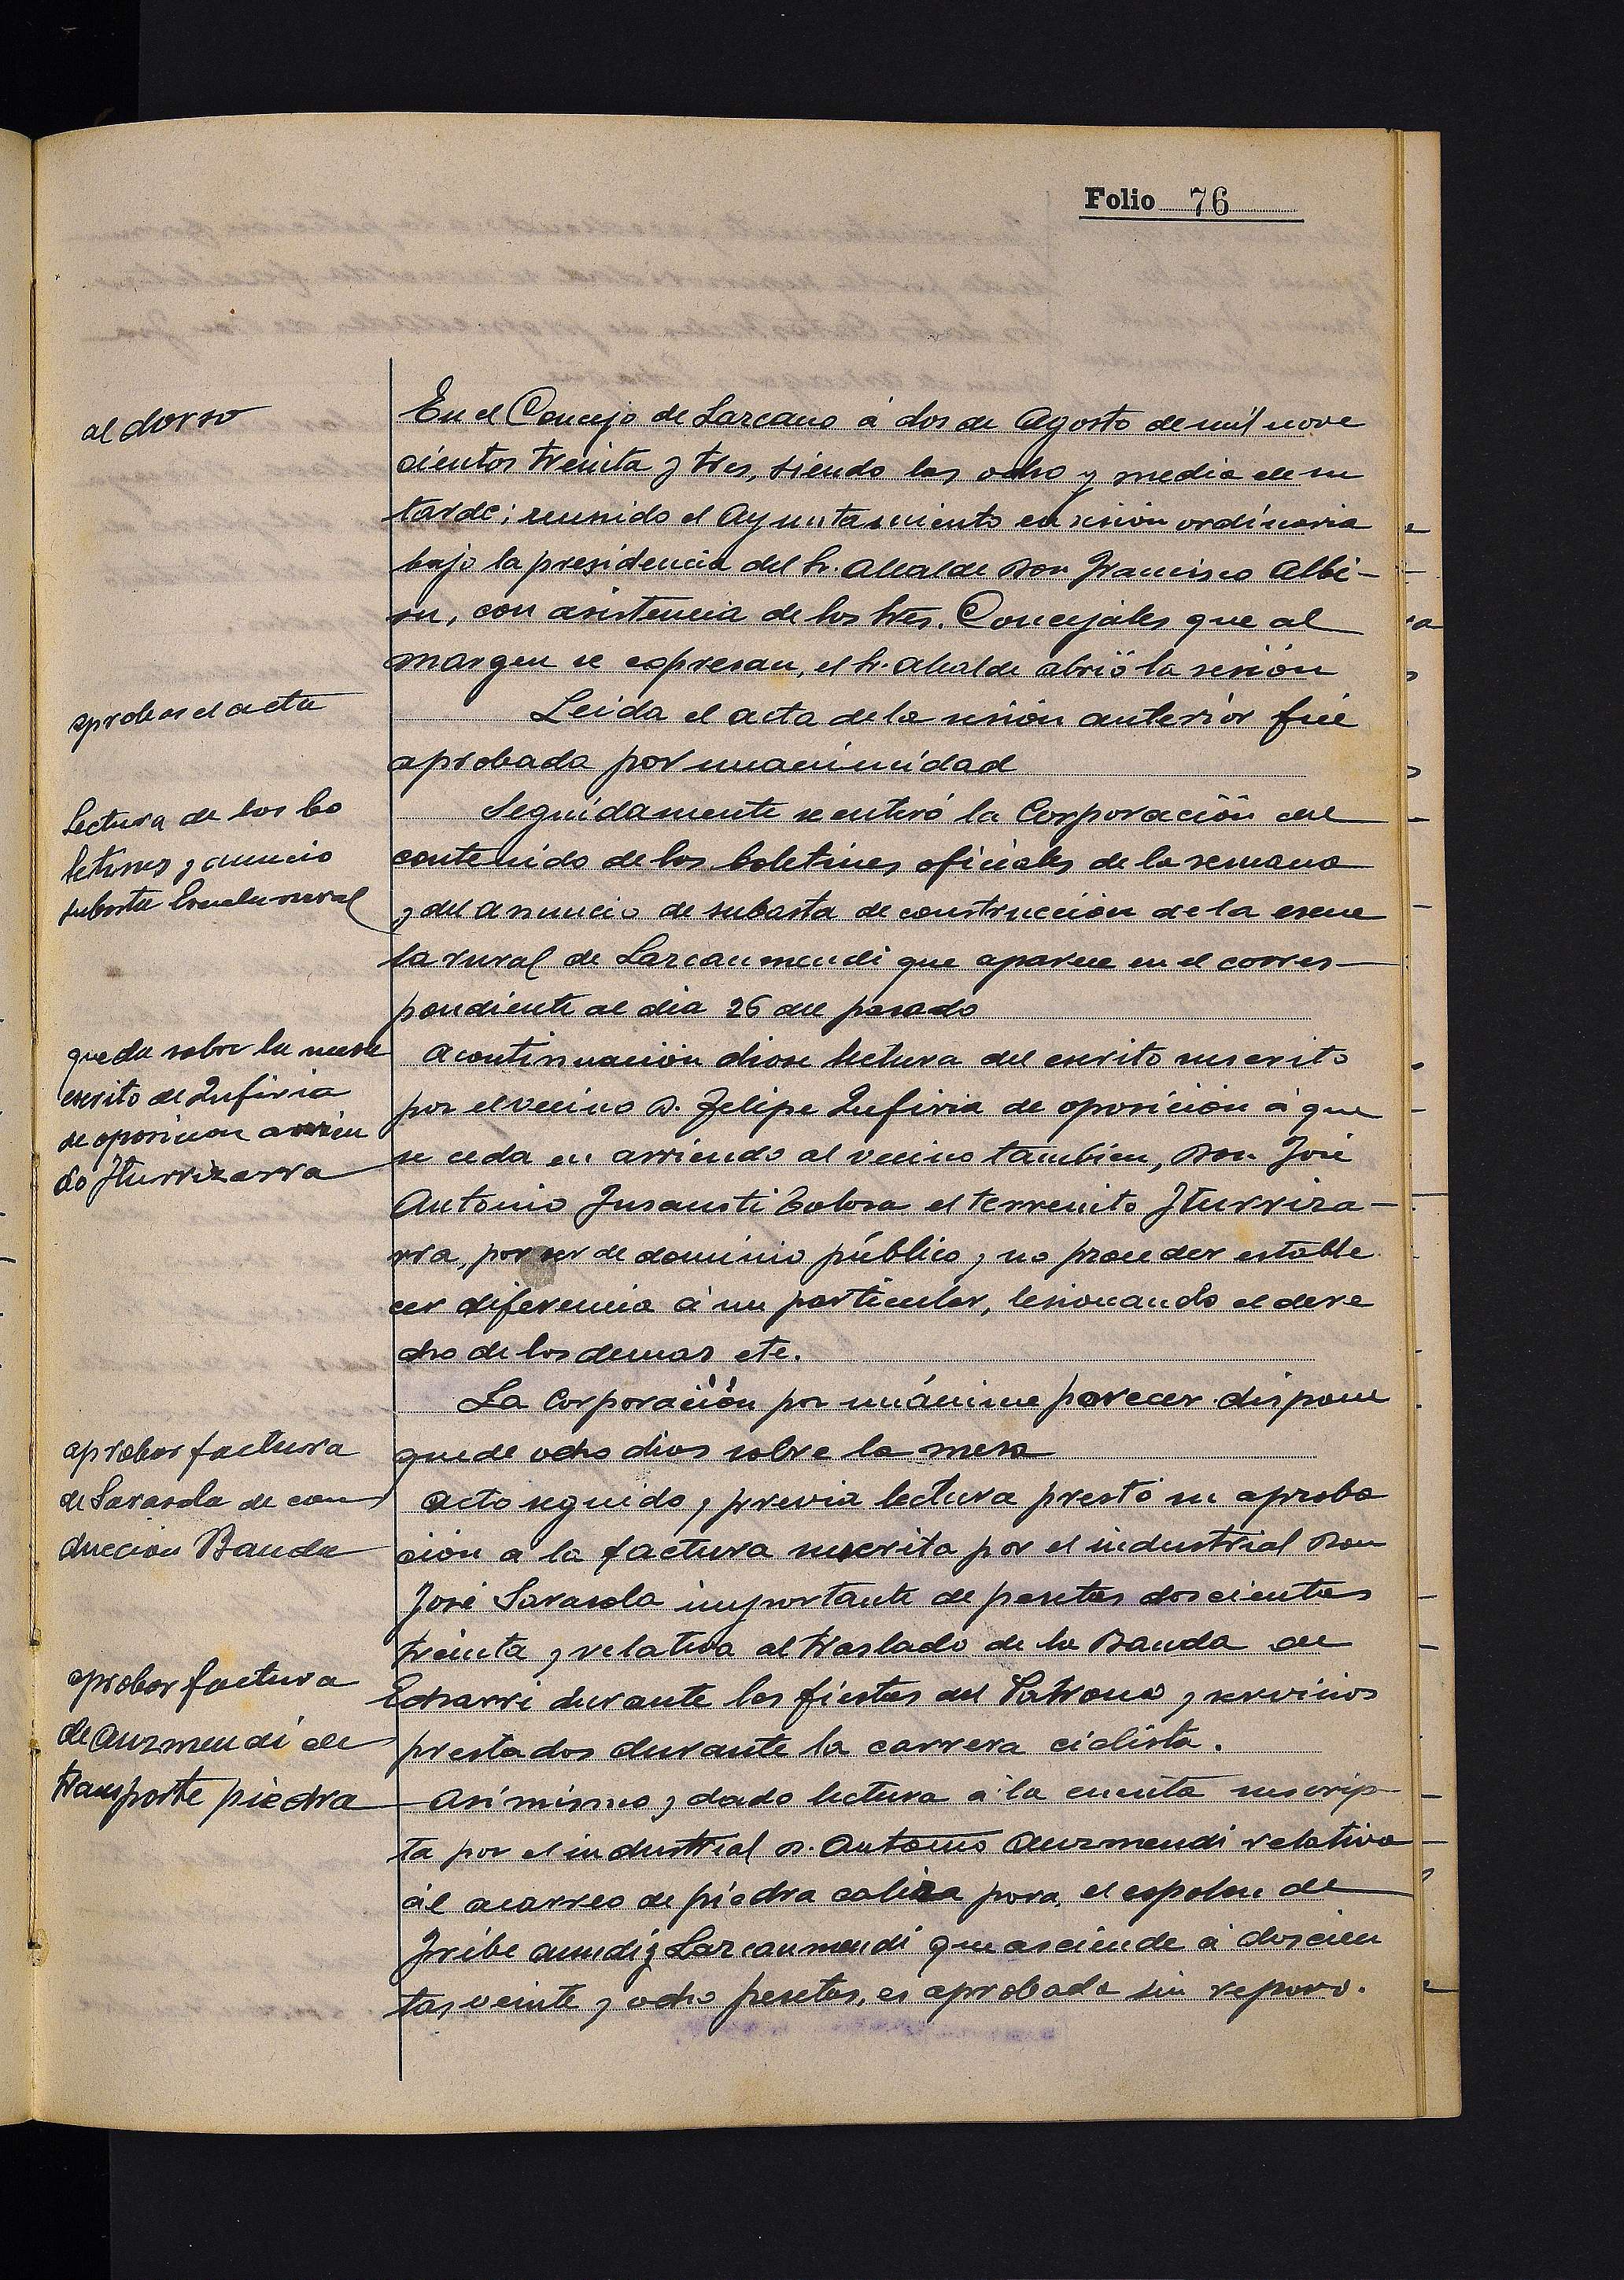 Folio 76
al dorso
En el Concejo de Lazcano á dos de Agosto de mil nove
cientos treinta y tres, siendo las ocho y media de su
tarde; reunido el Ayuntamiento en sesión ordinaria
bajo la presidencia del Sr. Alcalde Don Francisco Albi-
su, con asistencia de los Sres. Concejales que al
margen se expresan, el Sr. Alcalde abrió la sesión
aprobar el acta
Leida el acta de la sesión anterior fué
aprobada por unanimidad
Lectura de los bo
letines y anuncio
subasta Escuela rural
Seguidamente se enteró la Corporación del
contenido de los boletines oficiales de la semana
y del anuncio de subasta de construcción de la escue
la rural de Lazcaumendi que aparece en el corres-
pondiente al dia 26 del pasado
queda sobre la mesa
escrito de Zufiria
de oposicion arrien
do Iturrizarra
A continuación diose lectura del escrito suscrito
por el vecino D. Felipe Zufiria de oposición á que
se ceda en arriendo al vecino tambien, Don José
Antonio Insausti Tolosa el terrenito Iturriza-
rra, por ser de dominio público y no proceder estable
cer diferencia á un particular, lesionando el dere
cho de los demas etc.
La Corporación por unánime parecer dispone
quede ocho dias sobre la mesa
aprobar factura
de Sarasola de con
duccion Banda
Acto seguido y previa lectura prestó su aproba
ción a la factura suscrita por el industrial Don
José Sarasola importante de pesetas doscientas
treinta y relativa al traslado de la Banda de
Echarri durante las fiestas del Patrono y servicios
prestados durante la carrera ciclista.
aprobar factura
de Auzmendi de
transporte piedra
Asi mismo y dado lectura á la cuenta suscrip-
ta por el industrial D. Antonio Auzmendi relativa
ál acarreo de piedra caliza para el espolon de
Iribe aundi y Lazcaumendi que asciende á doscien
tas veinte y ocho pesetas, es aprobada sin reparo.